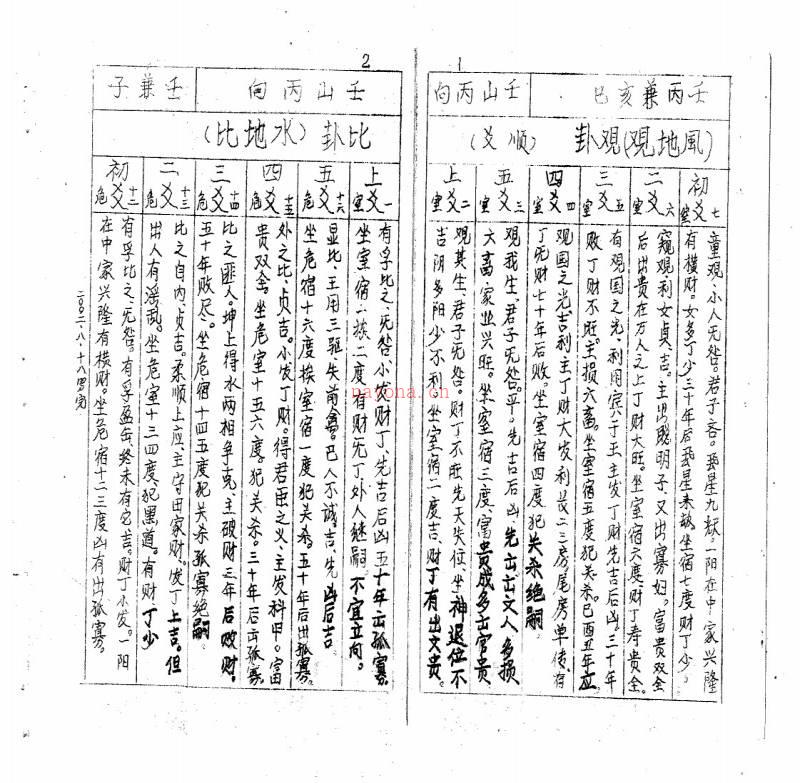 1
壬丙兼亥巳
壬山丙向
风地观(观卦
(顺爻)
初爻 七室
童观、小人无咎。君子吝。
有横财。女多丁少三十年后
坐室宿七度财丁少,
一阳在中家兴隆
二爻 六室
窥观、利女贞吉。主出聪明子、又出寡妇。富贵双全
后出贵在万人之上丁财大旺。坐室宿六度财丁寿贵全。
三爻 五室
有观国之光、利用宾于王、主发丁财先吉后凶、三十年
败丁财不旺。主损六畜。坐室宿五度犯关杀。巳酉丑年应。
四爻 四室
观国之光吉利主丁财大发利长二三房尾房单传、有
丁无财七十年后败。坐室宿四度犯关杀绝嗣
五爻 三室
观我生、君子无咎。平。先吉后凶先出文人多损
六畜、家业兴旺。坐室宿三度、富贵成多出官贵
上爻 二室
观其生、君子无咎。财丁不旺先天失位、坐神退位不
吉阴多阳少不利、坐室宿二度吉、财丁有出文贵。
2
壬山丙向
壬兼子
比卦(水地比)
上爻 一室
有孚比之、无咎。小发财丁、先吉后凶五十年出孤寡。
坐室宿一挨二度有财无丁、外人继嗣不宜立向。
五爻 十六危
显比、王用三驱失前禽。邑人不诫。吉、先凶后吉
坐危宿十六度挨室宿一度犯关杀。五十年后出孤寡。
四爻 十五危
外之比、贞吉。小发丁财。得君臣之义、主发科甲。富
贵双全。坐危室十五六度。犯关杀。三十年后出孤寡
三爻 十四危
比之匪人。坤上得水两相争克、主破财三年后败财。
五十年败尽。坐危宿十四五度犯关杀孤寡绝嗣
二爻 十三危
比之自内、贞吉。柔顺上应、主守田家财。发丁上吉。但
出人有淫乱。坐危室十三四度、犯黑道。有财丁少
初爻 十二危
有孚比之、无咎。有孚盈缶、终未有它吉。财丁小发。一阳
在中家兴隆有横财。坐危宿十二三度凶有出孤寡。
二00二.八.十八
nayona.cn